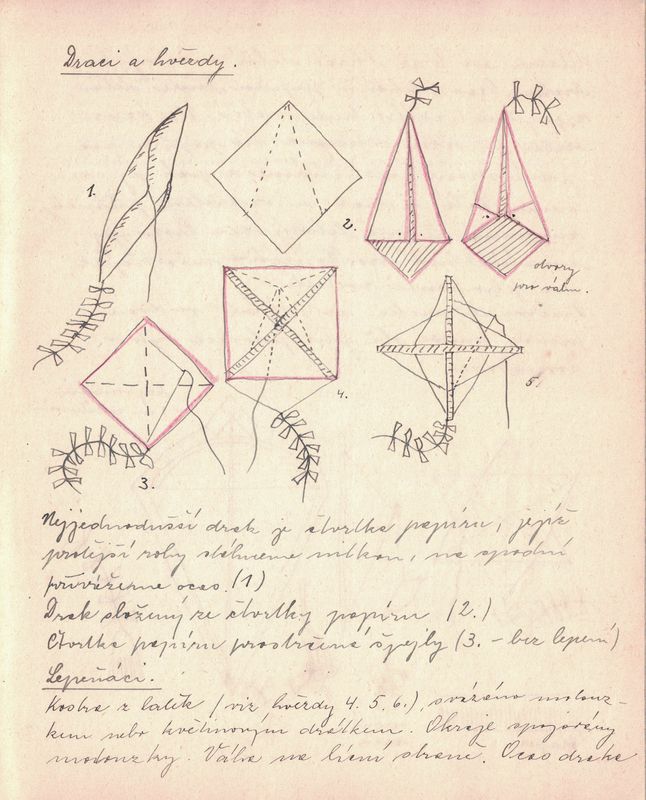 Draci a hvězdy.
1.
2.
otvory
pro váhu.
4.
5.
3.
Nejjednodušší drak je čtvrtka papíru, jejíž
protější rohy stáhneme nitkou, na spodní
přivážeme ocas. (1)
Drak složený ze čtvrtky papíru (2.)
Čtvrtka papíru prostrčená špejly (3. – bez lepení)
Lepeňáci.
Kostra z latěk (viz hvězdy 4. 5. 6.), svázána motouz-
kem nebo květinovým drátkem. Okraje spojovány
motouzky. Váha na lícní straně. Ocas draka